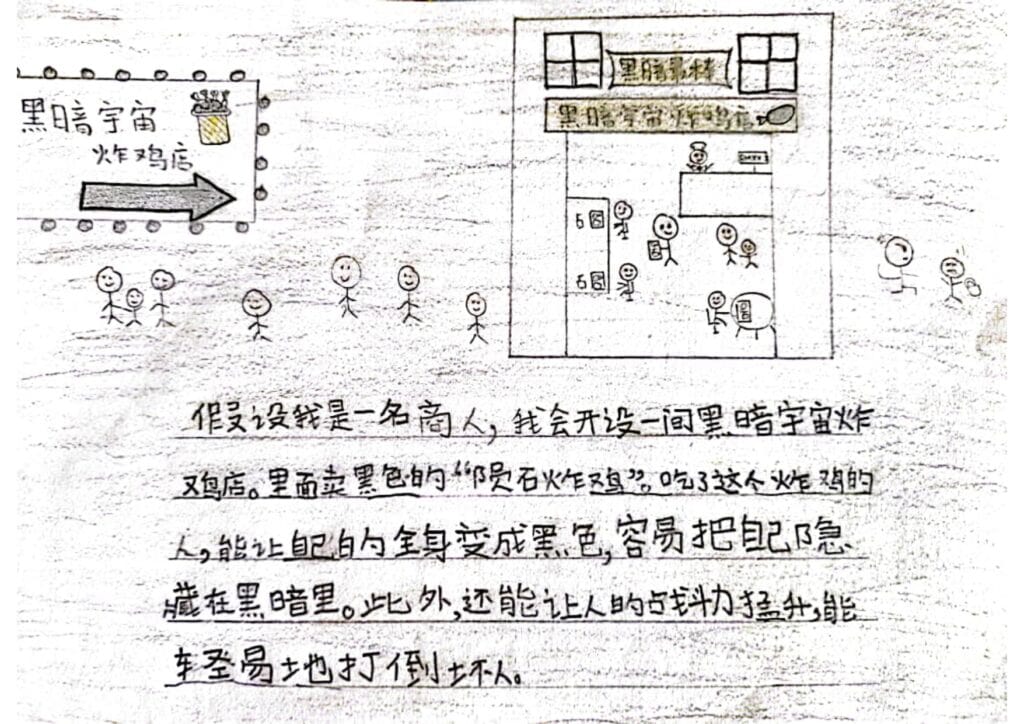 黑暗宇宙
炸鸡店
黑暗最棒
黑暗宇宙炸鸡店
假设我是一名商人，我会开设一间黑暗宇宙炸
鸡店。里面卖黑色的“陨石炸鸡”。吃了这个炸鸡的
人，能让自己的全身变成黑色，容易把自己隐
藏在黑暗里。此外，还能让人的战斗力猛升，能
轻易地打倒坏人。